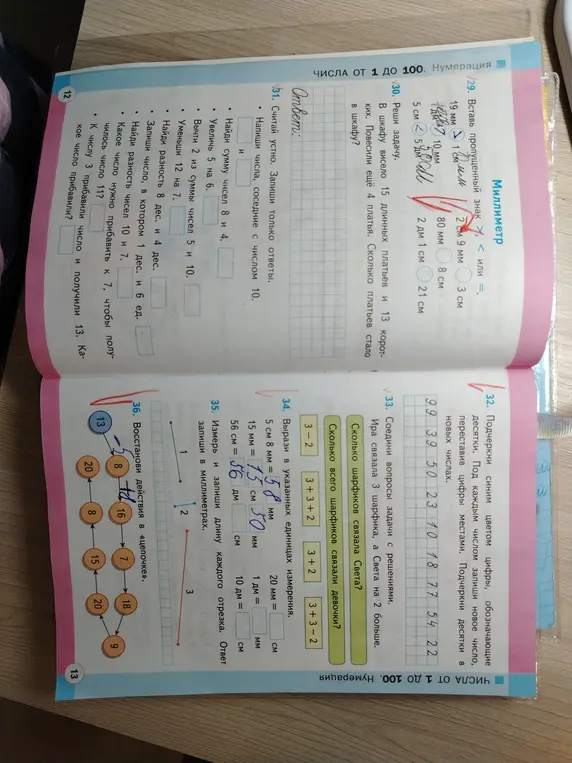 ЧИСЛА ОТ 1 ДО 100. Нумерация
Миллиметр
29. Вставь пропущенный знак >, < или =.
19 мм > 1 2 см 9 мм 3 см
10 мм 80 мм 8 см
5 см < 5 дм 2 дм 1 см 21 см
30. Реши задачу.
В шкафу висело 15 длинных платьев и 13 корот-
ких. Повесили ещё 4 платья. Сколько платьев стало
в шкафу?
Ответ:
31. Считай устно. Запиши только ответы.
• Напиши числа, соседние с числом 10.
и
• Найди сумму чисел 8 и 4.
• Увеличь 5 на 6.
• Вычти 2 из суммы чисел 5 и 10.
• Уменьши 12 на 7.
• Найди разность 8 дес. и 4 дес.
• Запиши число, в котором 1 дес. и 6 ед.
• Найди разность чисел 10 и 7.
• Какое число нужно прибавить к 7, чтобы полу-
чилось число 11?
• К числу 3 прибавили число и получили 13. Ка-
кое число прибавили?
12
ЧИСЛА ОТ 1 ДО 100. Нумерация
32. Подчеркни синим цветом цифры, обозначающие
десятки. Под каждым числом запиши новое число,
переставив цифры местами. Подчеркни десятки в
новых числах.
99 39 50 23 10 18 77 54 22
33. Соедини вопросы задачи с решениями.
Ира связала 3 шарфика, а Света на 2 больше.
Сколько шарфиков связала Света?
Сколько всего шарфиков связали девочки?
3 − 2 3 + 3 + 2 3 + 2 3 + 3 − 2
34. Вырази в указанных единицах измерения.
5 см 8 мм = 58 мм 20 мм = см
15 мм = 15 см 50 мм 1 дм = мм
56 см = 56 дм см 10 дм = см
35. Измерь и запиши длину каждого отрезка. Ответ
запиши в миллиметрах.
1 2 3
36. Восстанови действия в «цепочке».
13 8 16 7 18 9
20 8 15 20
13